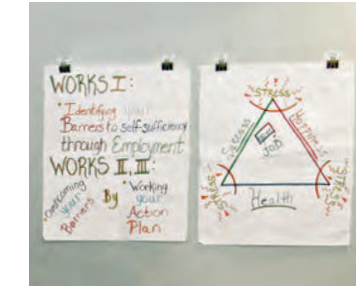 WORKS I:
• Identifying your
Barriers to self-sufficiency
through Employment
WORKS II, III:
Overcoming
your
Barriers
By
• Working
your
Action
Plan
STRESS
Success
Happiness
JOB
STRESS
STRESS
Health